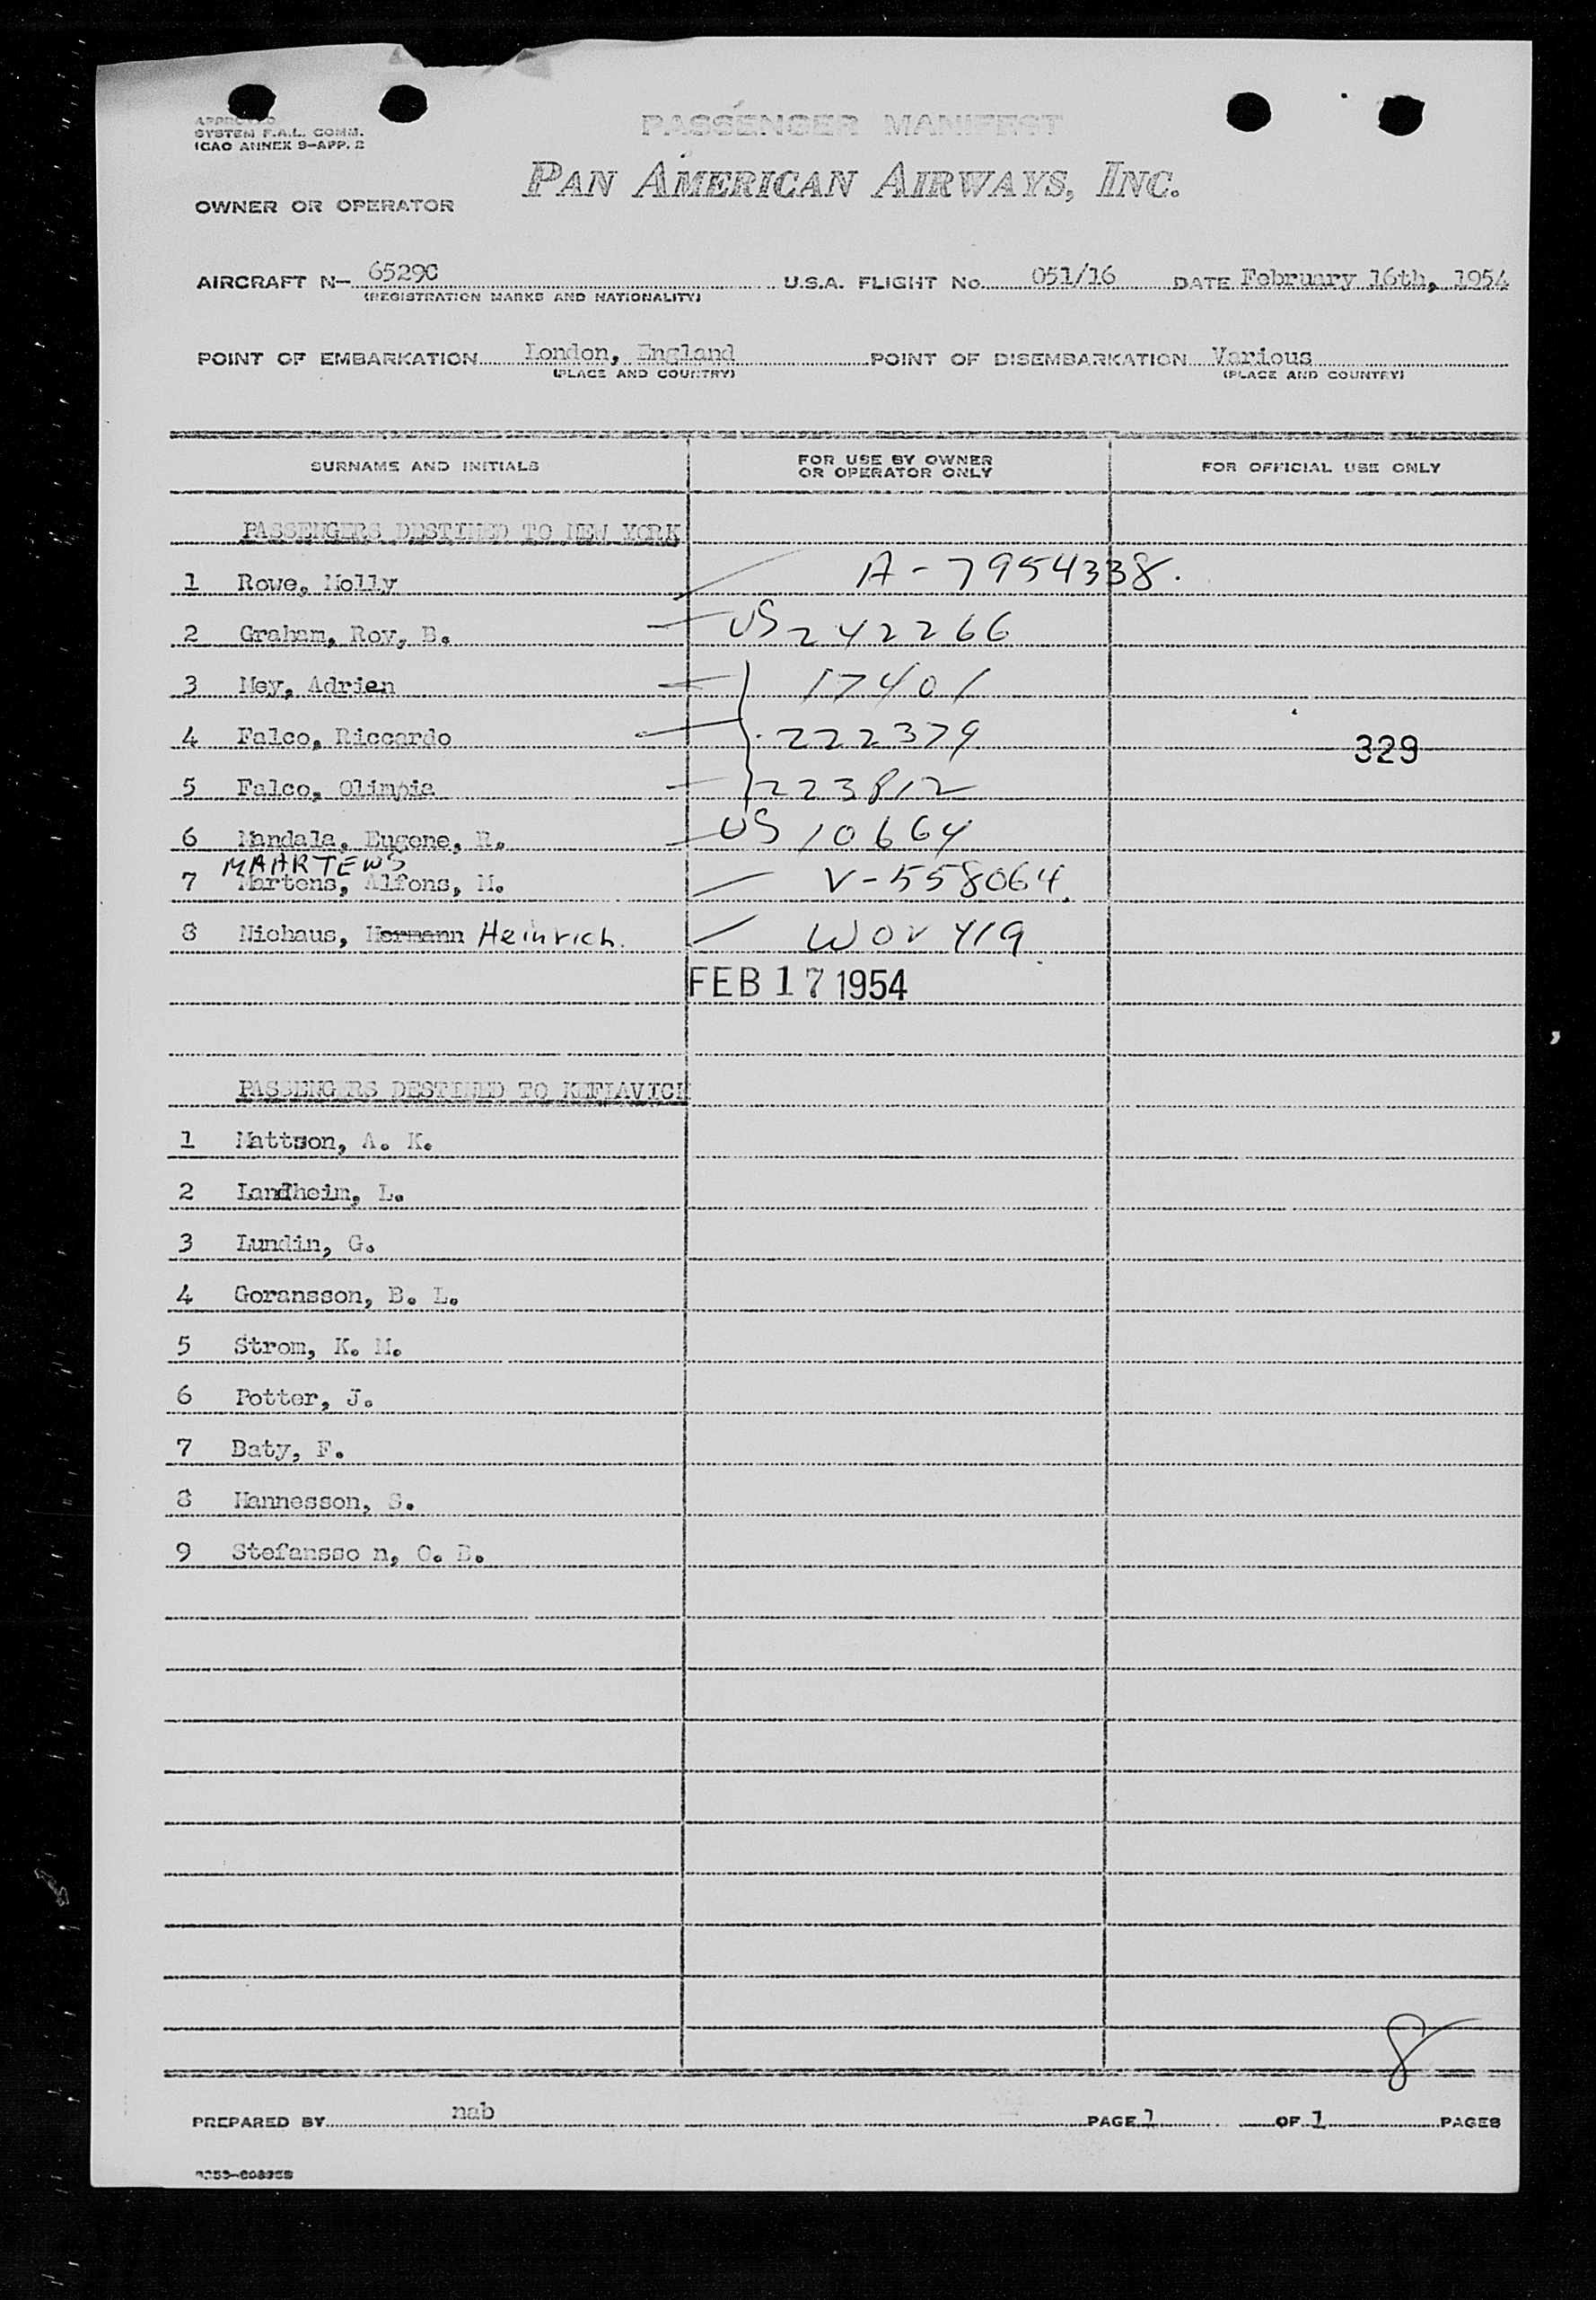 APPROVED
SYSTEM F.A.L. COMM.
ICAO ANNEX 9-APP. 2
PASSENGER MANIFEST
PAN AMERICAN AIRWAYS, INC.
OWNER OR OPERATOR
AIRCRAFT N- 6529C U.S.A. FLIGHT No. 051/16 DATE February 16th, 1954
(REGISTRATION MARKS AND NATIONALITY)
POINT OF EMBARKATION London, England POINT OF DISEMBARKATION Various
(PLACE AND COUNTRY) (PLACE AND COUNTRY)
SURNAME AND INITIALS FOR USE BY OWNER OR OPERATOR ONLY FOR OFFICIAL USE ONLY
PASSENGERS DESTINED TO NEW YORK
1 Rowe, Molly A-7954338.
2 Graham, Roy, B. US 242266
3 Mey, Adrien 17401
4 Falco, Riccardo 222379 329
5 Falco, Olimpia 223812
6 Mandala, Eugene, R. US 10664
MAARTENS
7 Martens, Alfons, M. V-558064.
8 Niehaus, Hermann Heinrich. 419
FEB 17 1954
PASSENGERS DESTINED TO KEFLAVICK
1 Mattson, A. K.
2 Landheim, L.
3 Lundin, G.
4 Goransson, B. L.
5 Strom, K. M.
6 Potter, J.
7 Baty, F.
8 Hannesson, S.
9 Stefansso n, O. B.
8
PREPARED BY nab PAGE 1 OF 1 PAGES